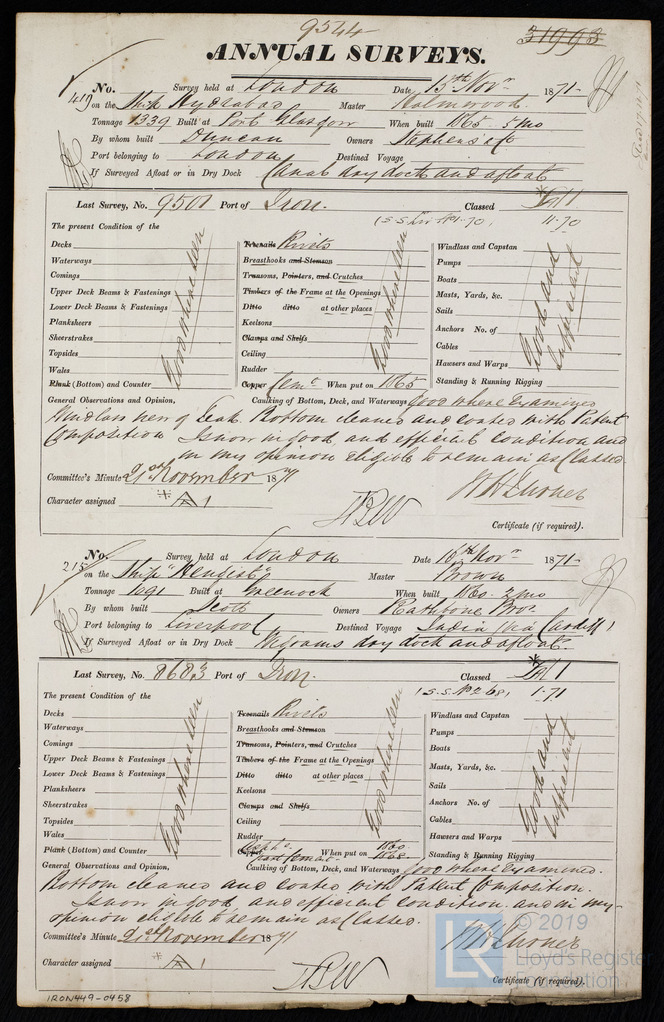 9544
31993
ANNUAL SURVEYS.
No. 419 Survey held at London Date 15th Novr 1871
on the Ship Hydrabad Master Holmwood
Tonnage 1339 Built at Port Glasgow When built 1865 5 mo
By whom built Duncan Owners Stephens &c
Port belonging to London Destined Voyage
If Surveyed Afloat or in Dry Dock Canal dry dock and afloat
Last Survey, No. 9501 Port of Iron. Classed
11.70
The present Condition of the
Decks
Waterways
Comings
Upper Deck Beams & Fastenings
Lower Deck Beams & Fastenings
Planksheers
Sheerstrakes
Topsides
Wales
Plank (Bottom) and Counter
Good where seen
Treenails Rivets
Breasthooks and Stemson
Transoms, Pointers, and Crutches
Timbers of the Frame at the Openings
Ditto ditto at other places
Keelsons
Clamps and Shelfs
Ceiling
Rudder
Copper Cemt When put on 1865
Good where seen
Windlass and Capstan
Pumps
Boats
Masts, Yards, &c.
Sails
Anchors No. of
Cables
Hawsers and Warps
Standing & Running Rigging
Good and sufficient
General Observations and Opinion, Caulking of Bottom, Deck, and Waterways Good where Examined
Windlass new of Teak. Bottom cleaned and coated with Patent
Composition Is now in good and efficient condition and
in my opinion eligible to remain as Classed.
Committee's Minute 21st November 1871
Character assigned A 1
Certificate (if required).
No. 215 Survey held at London Date 16th Novr 1871
on the Ship "Hengist" Master Brown
Tonnage 1091 Built at Greenock When built 1860 2 mo
By whom built Scott Owners Rathbone Bros.
Port belonging to Liverpool Destined Voyage India via Cardiff
If Surveyed Afloat or in Dry Dock Wigrams dry dock and afloat.
Last Survey, No. 8683 Port of Iron. Classed
(S.S. No 2 68) 1.71
The present Condition of the
Decks
Waterways
Comings
Upper Deck Beams & Fastenings
Lower Deck Beams & Fastenings
Planksheers
Sheerstrakes
Topsides
Wales
Plank (Bottom) and Counter
Good where seen
Treenails Rivets
Breasthooks and Stemson
Transoms, Pointers, and Crutches
Timbers of the Frame at the Openings
Ditto ditto at other places
Keelsons
Clamps and Shelfs
Ceiling
Rudder
Copper part Cement When put on 1860 1868
Good where seen
Windlass and Capstan
Pumps
Boats
Masts, Yards, &c.
Sails
Anchors No. of
Cables
Hawsers and Warps
Standing & Running Rigging
Good and sufficient
General Observations and Opinion, Caulking of Bottom, Deck, and Waterways Good where Examined.
Bottom cleaned and coated with Patent Composition.
Is now in good and efficient condition and in my
opinion eligible to remain as Classed.
Committee's Minute 21st November 1871
Character assigned A 1
Certificate (if required).
IRON449-0458
© 2019
LR
Lloyd's Register
Foundation